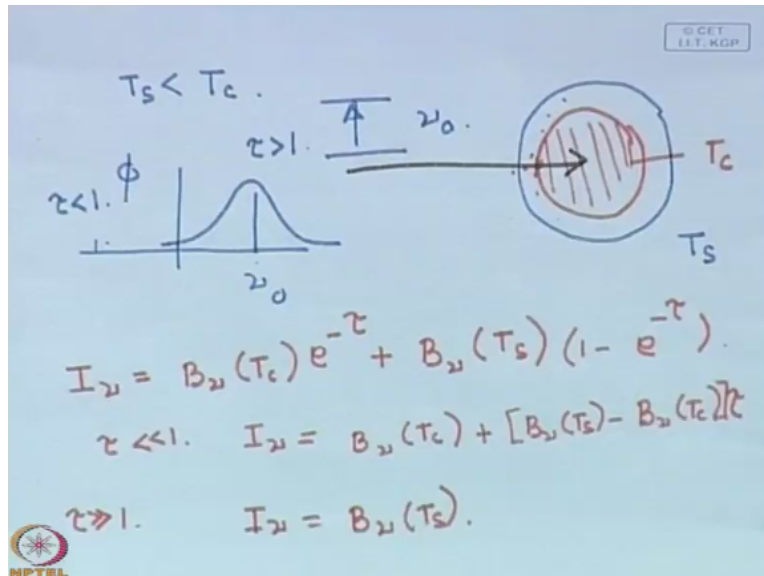 © CET
I.I.T. KGP
T_S < T_C .
τ > 1.
ν_0 .
T_C
τ < 1.
ϕ
ν_0
T_S
I_ν = B_ν (T_C) e^{-τ} + B_ν (T_S) (1 - e^{-τ}) .
τ << 1. I_ν = B_ν (T_C) + [B_ν (T_S) - B_ν (T_C)] τ
τ >> 1. I_ν = B_ν (T_S) .
NPTEL